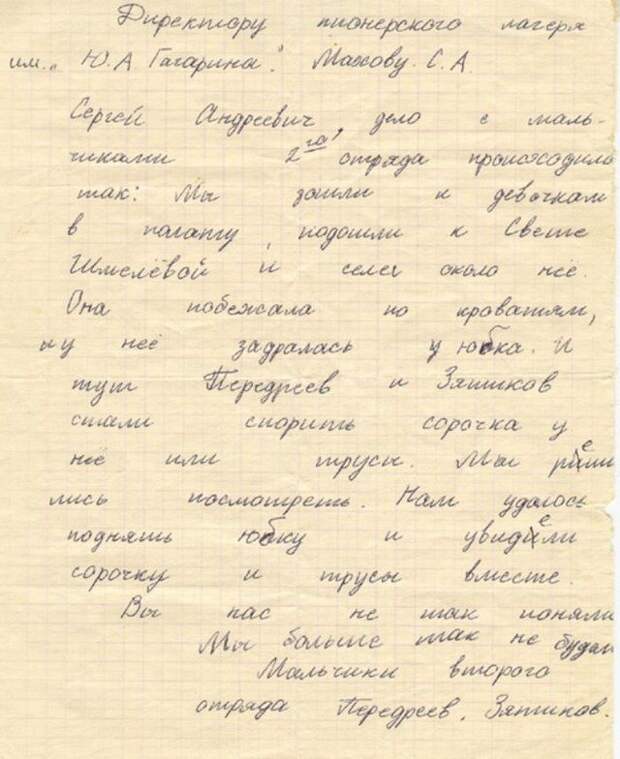 Директору пионерского лагеря
им. „Ю. А. Гагарина". Махову. С. А.
Сергей Андреевич, дело с маль-
чиками 2го отряда происходило
так: Мы зошли к девочкам
в палату, подошли к Свете
Шмелёвой и сели около неё.
Она побежала по кроватям,
и у неё задралась у юбка. И
тут Передреев и Зятиков
стали спорить сорочка у
неё или трусы. Мы реши
лись посмотреть. Нам удалось
поднять юбку и увидели
сорочку и трусы вместе.
Вы нас не так поняли
Мы больше так не будем
Мальчики второго
отряда Передреев, Зятиков.